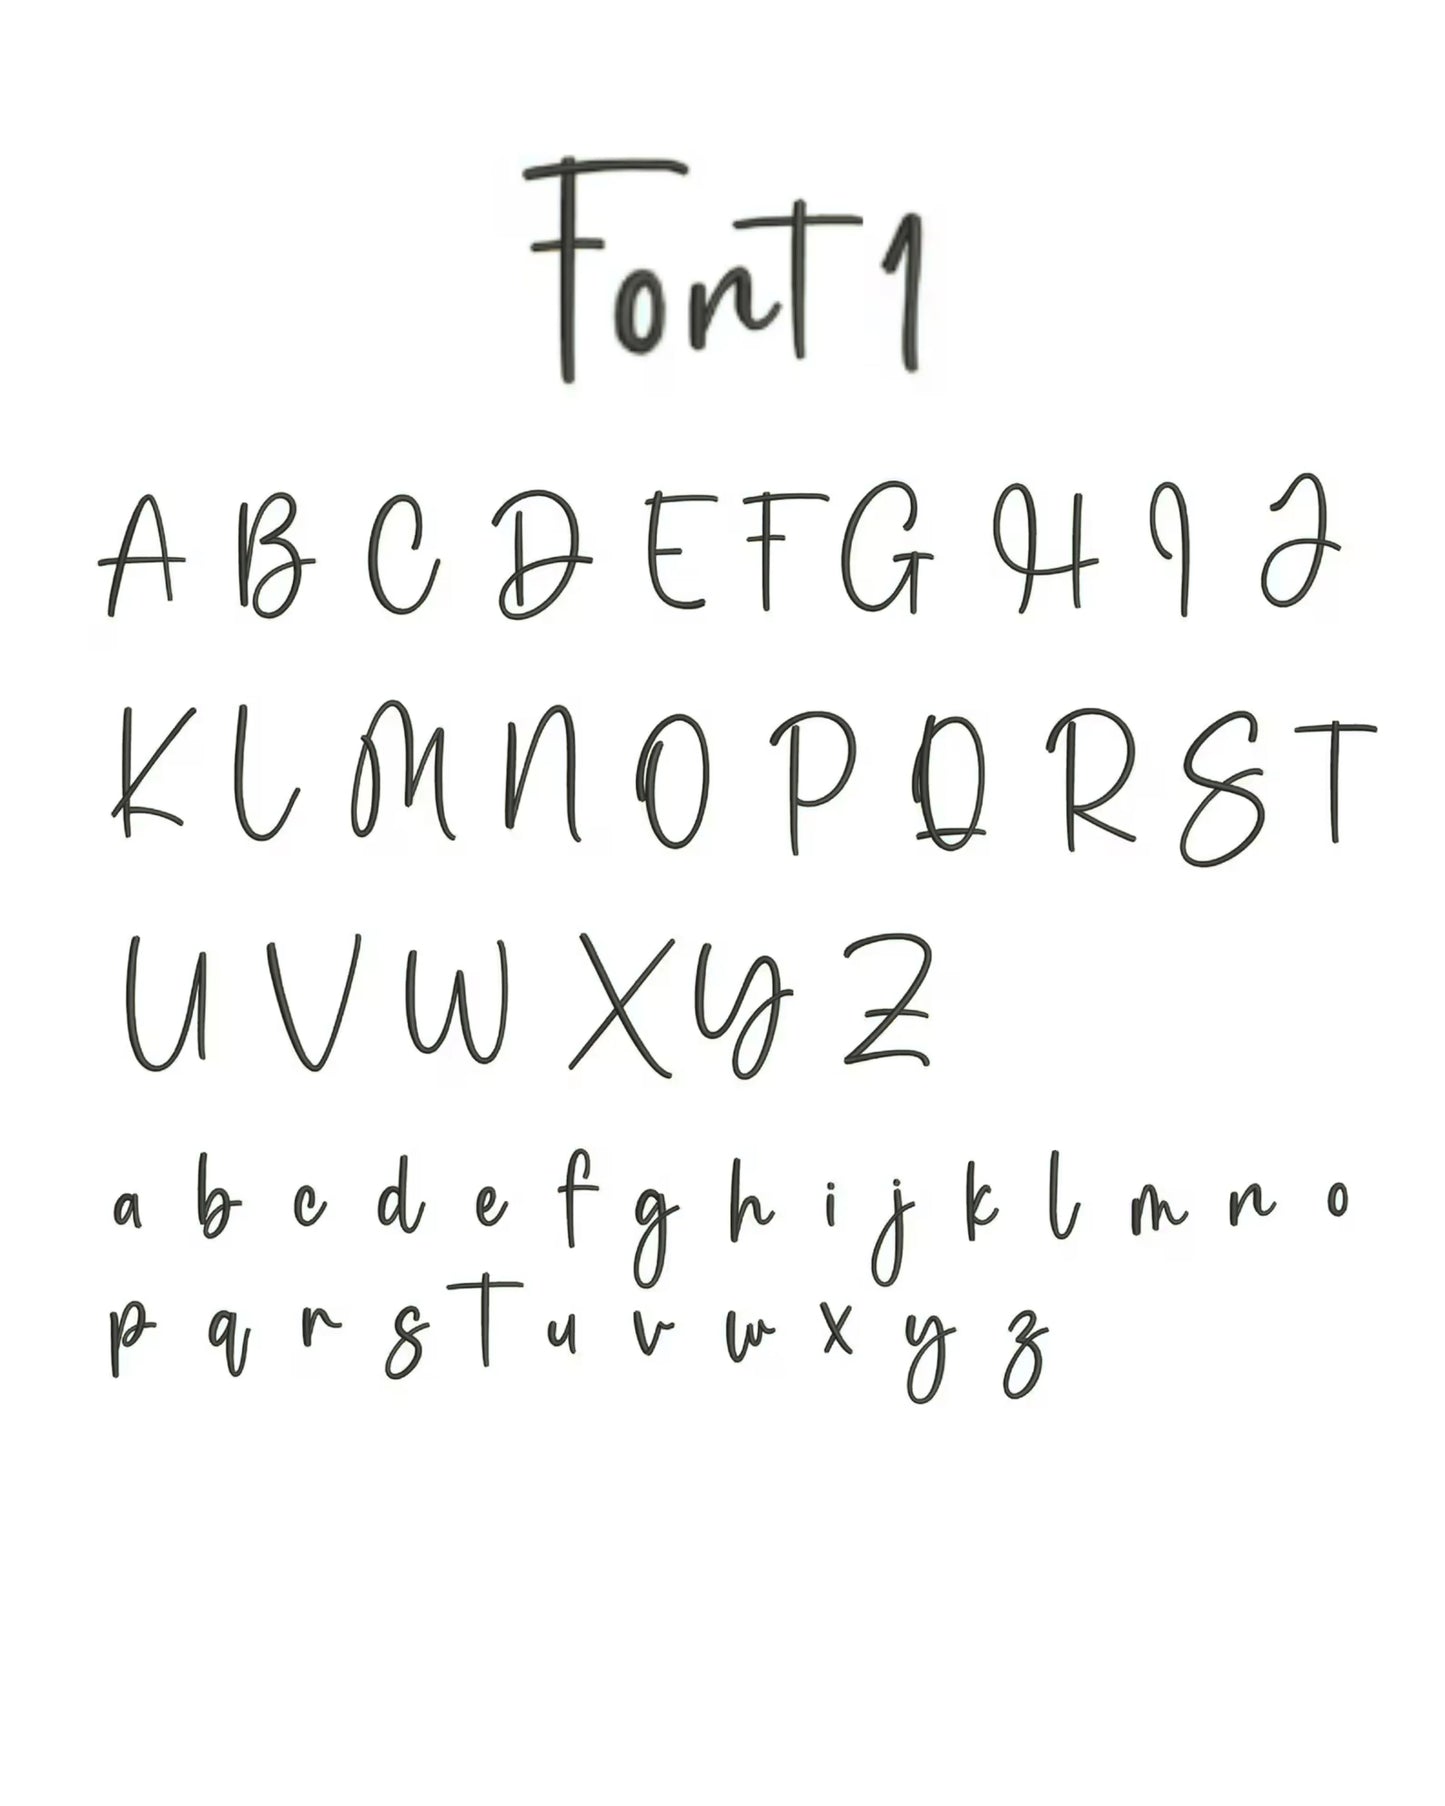 Font 1
A B C D E F G H I J
K L M N O P Q R S T
U V W X Y Z
a b c d e f g h i j k l m n o
p q r s t u v w x y z